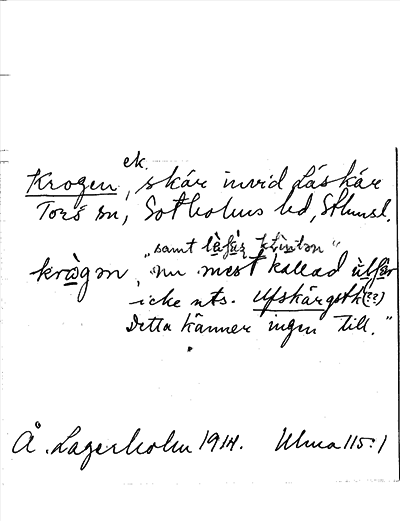 ek.
Krogen, skär invid Låskär
Tors sn, Sotholms hd, Sthmsl.
"samt
krògən, nu mest kallad
icke nts. Ufskärgsth(??)
Detta känner ingen till."
Å. Lagerholm 1914. Ulma 115:1